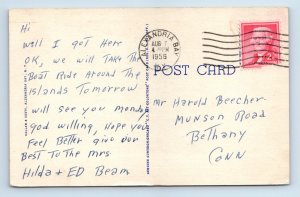 Hi
Will I got Here
OK, we will Take The
Boat Ride Around The
islands Tomorrow
will see you monday
god willing, Hope you
Feel Better give our
Best To The mrs
Hilda + ED Beam
ALEXANDRIA BAY
AUG
PM
1956
POST CARD
Mr Harold Beecher
Munson Road
Bethany
Conn
2¢